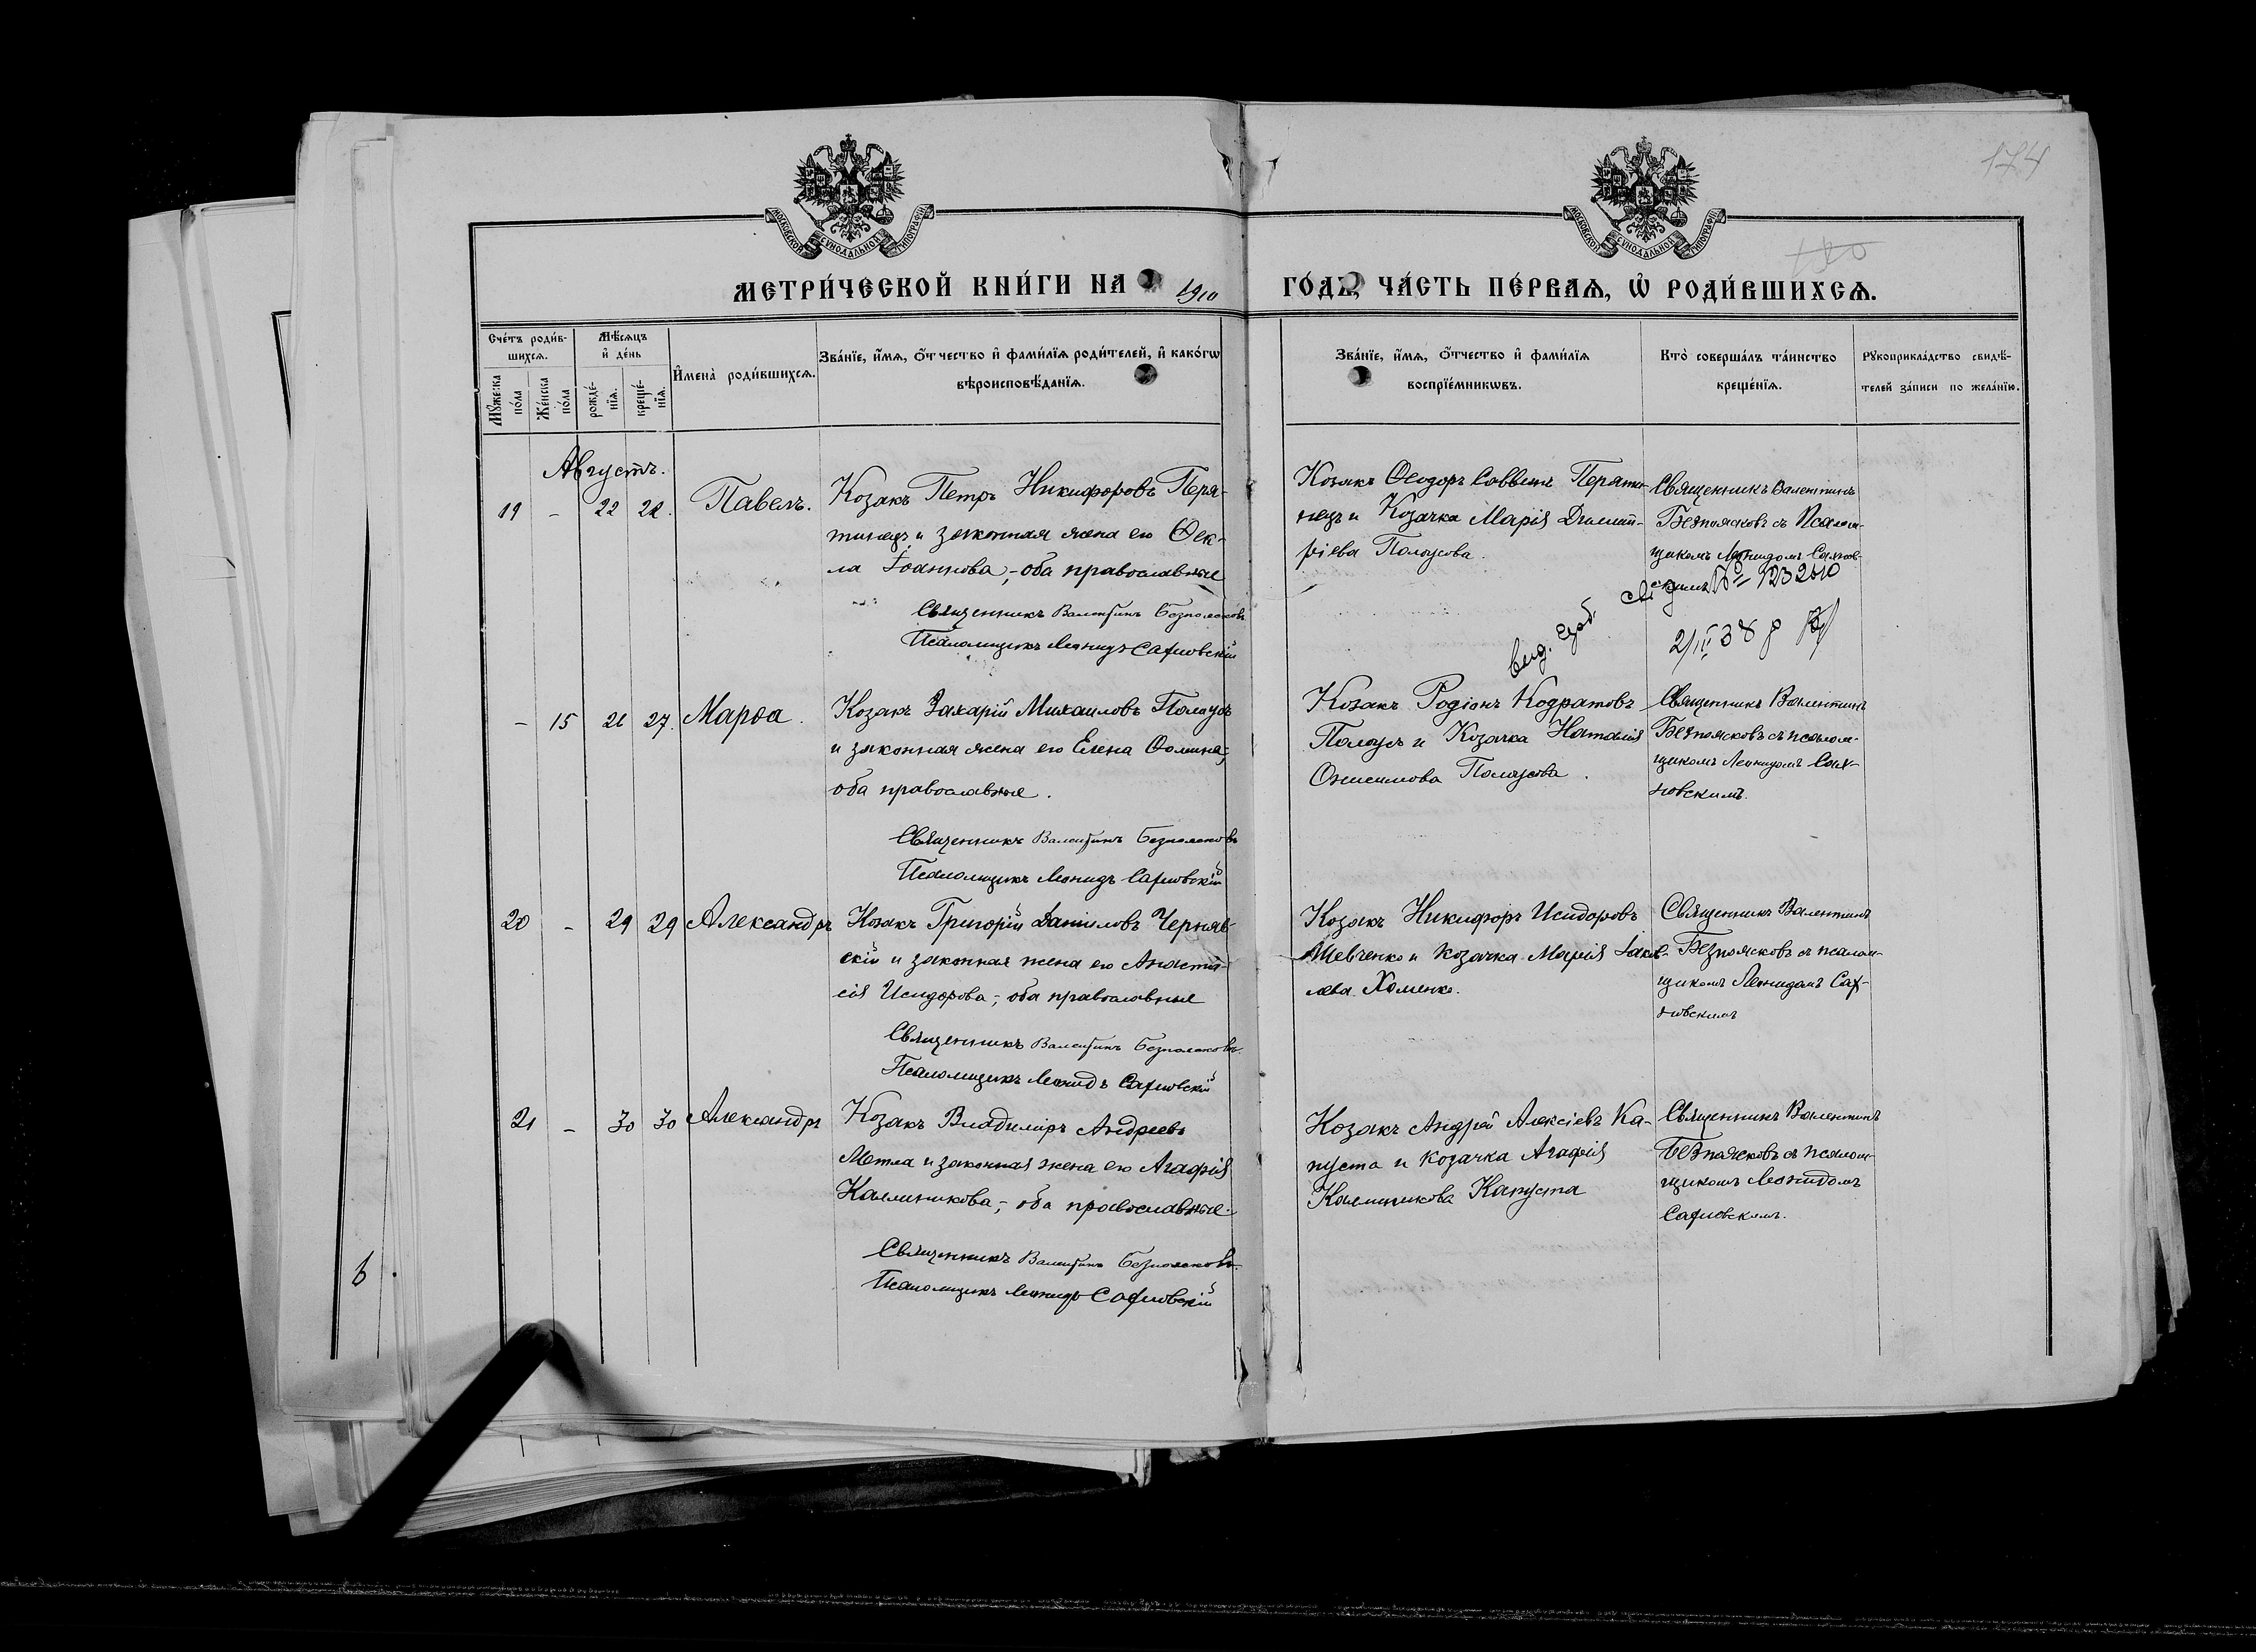 174
180
МОСКОВСКОЙ СУНОДАЛЬНОЙ ТИПОГРАФІИ
МОСКОВСКОЙ СУНОДАЛЬНОЙ ТИПОГРАФІИ
МЕТРИ́ЧЕСКОЙ КНИ́ГИ НА 1910 ГО́ДЪ, ЧА́СТЬ ПЕ́РВАѦ, Ѡ҆ РОДИ́ВШИХСѦ.
Сче́тъ роди́в-
шихсѧ.
Мѣ́сѧцъ
и҆ де́нь
Мꙋ́жеска
по́ла
Же́нска
по́ла
рожде́-
нїѧ.
креще́-
нїѧ.
И҆мена̀ роди́вшихсѧ.
Зва́нїе, и҆́мѧ, ѻ҆́тчество и҆ фамі́лїѧ роди́телей, и҆ како́гѡ
вѣроисповѣ́данїѧ.
Зва́нїе, и҆́мѧ, ѻ҆́тчество и҆ фамі́лїѧ
воспрїе́мникѡвъ.
Кто̀ соверша́лъ та́инство
креще́нїѧ.
Рꙋкоприкла́дство свидѣ́-
телей за́писи по жела́нїю.
Августъ.
19 - 22 22. Павелъ.
Козакъ Петръ Никифоровъ Перя-
тинецъ и законная жена его Ѳек-
ла Іоаннова,- оба православные
Священникъ Валентинъ Безпоясковъ
Псаломщикъ Леонидъ Сахновскій
Козакъ Ѳеодоръ Саввинъ Перяти-
нецъ и Козачка Марія Димит-
ріева Полоусова.
Священникъ Валентинъ
Безпоясковъ съ Псалом-
щикомъ Леонидомъ Сахнов-
скимъ
№ 123260
21/II 38 р
- 15 26 27. Марѳа.
Козакъ Захарій Михаиловъ Полоусъ
и законная жена его Елена Ѳомина,
оба православные.
Священникъ Валентинъ Безпоясковъ
Псаломщикъ Леонидъ Сахновскій
Козакъ Родіонъ Кодратовъ
Полоусъ и Козачка Наталія
Онисимова Полоусова.
Священникъ Валентинъ
Безпоясковъ съ псалом-
щикомъ Леонидомъ Сах-
новскимъ.
20 - 29 29 Александръ
Козакъ Григорій Даніиловъ Черняв-
скій и законная жена его Анаста-
сія Исидорова,- оба православные
Священникъ Валентинъ Безпоясковъ.
Псаломщикъ Леонидъ Сахновскій
Козакъ Никифоръ Исидоровъ
Шевченко и козачка Марія Іаков-
лева Хоменко.
Священникъ Валентинъ
Безпоясковъ съ псалом-
щикомъ Леонидомъ Сах-
новскимъ
21 - 30 30 Александръ
Козакъ Владиміръ Андреевъ
Метла и законная жена его Агафія
Каллиникова,- оба православные.
Священникъ Валентинъ Безпоясковъ.
Псаломщикъ Леонидъ Сахновскій
Козакъ Андрей Алексіевъ Ка-
пуста и козачка Агафія
Каллиникова Капуста
Священникъ Валентинъ
Безпоясковъ съ псалом-
щикомъ Леонидомъ
Сахновскимъ.